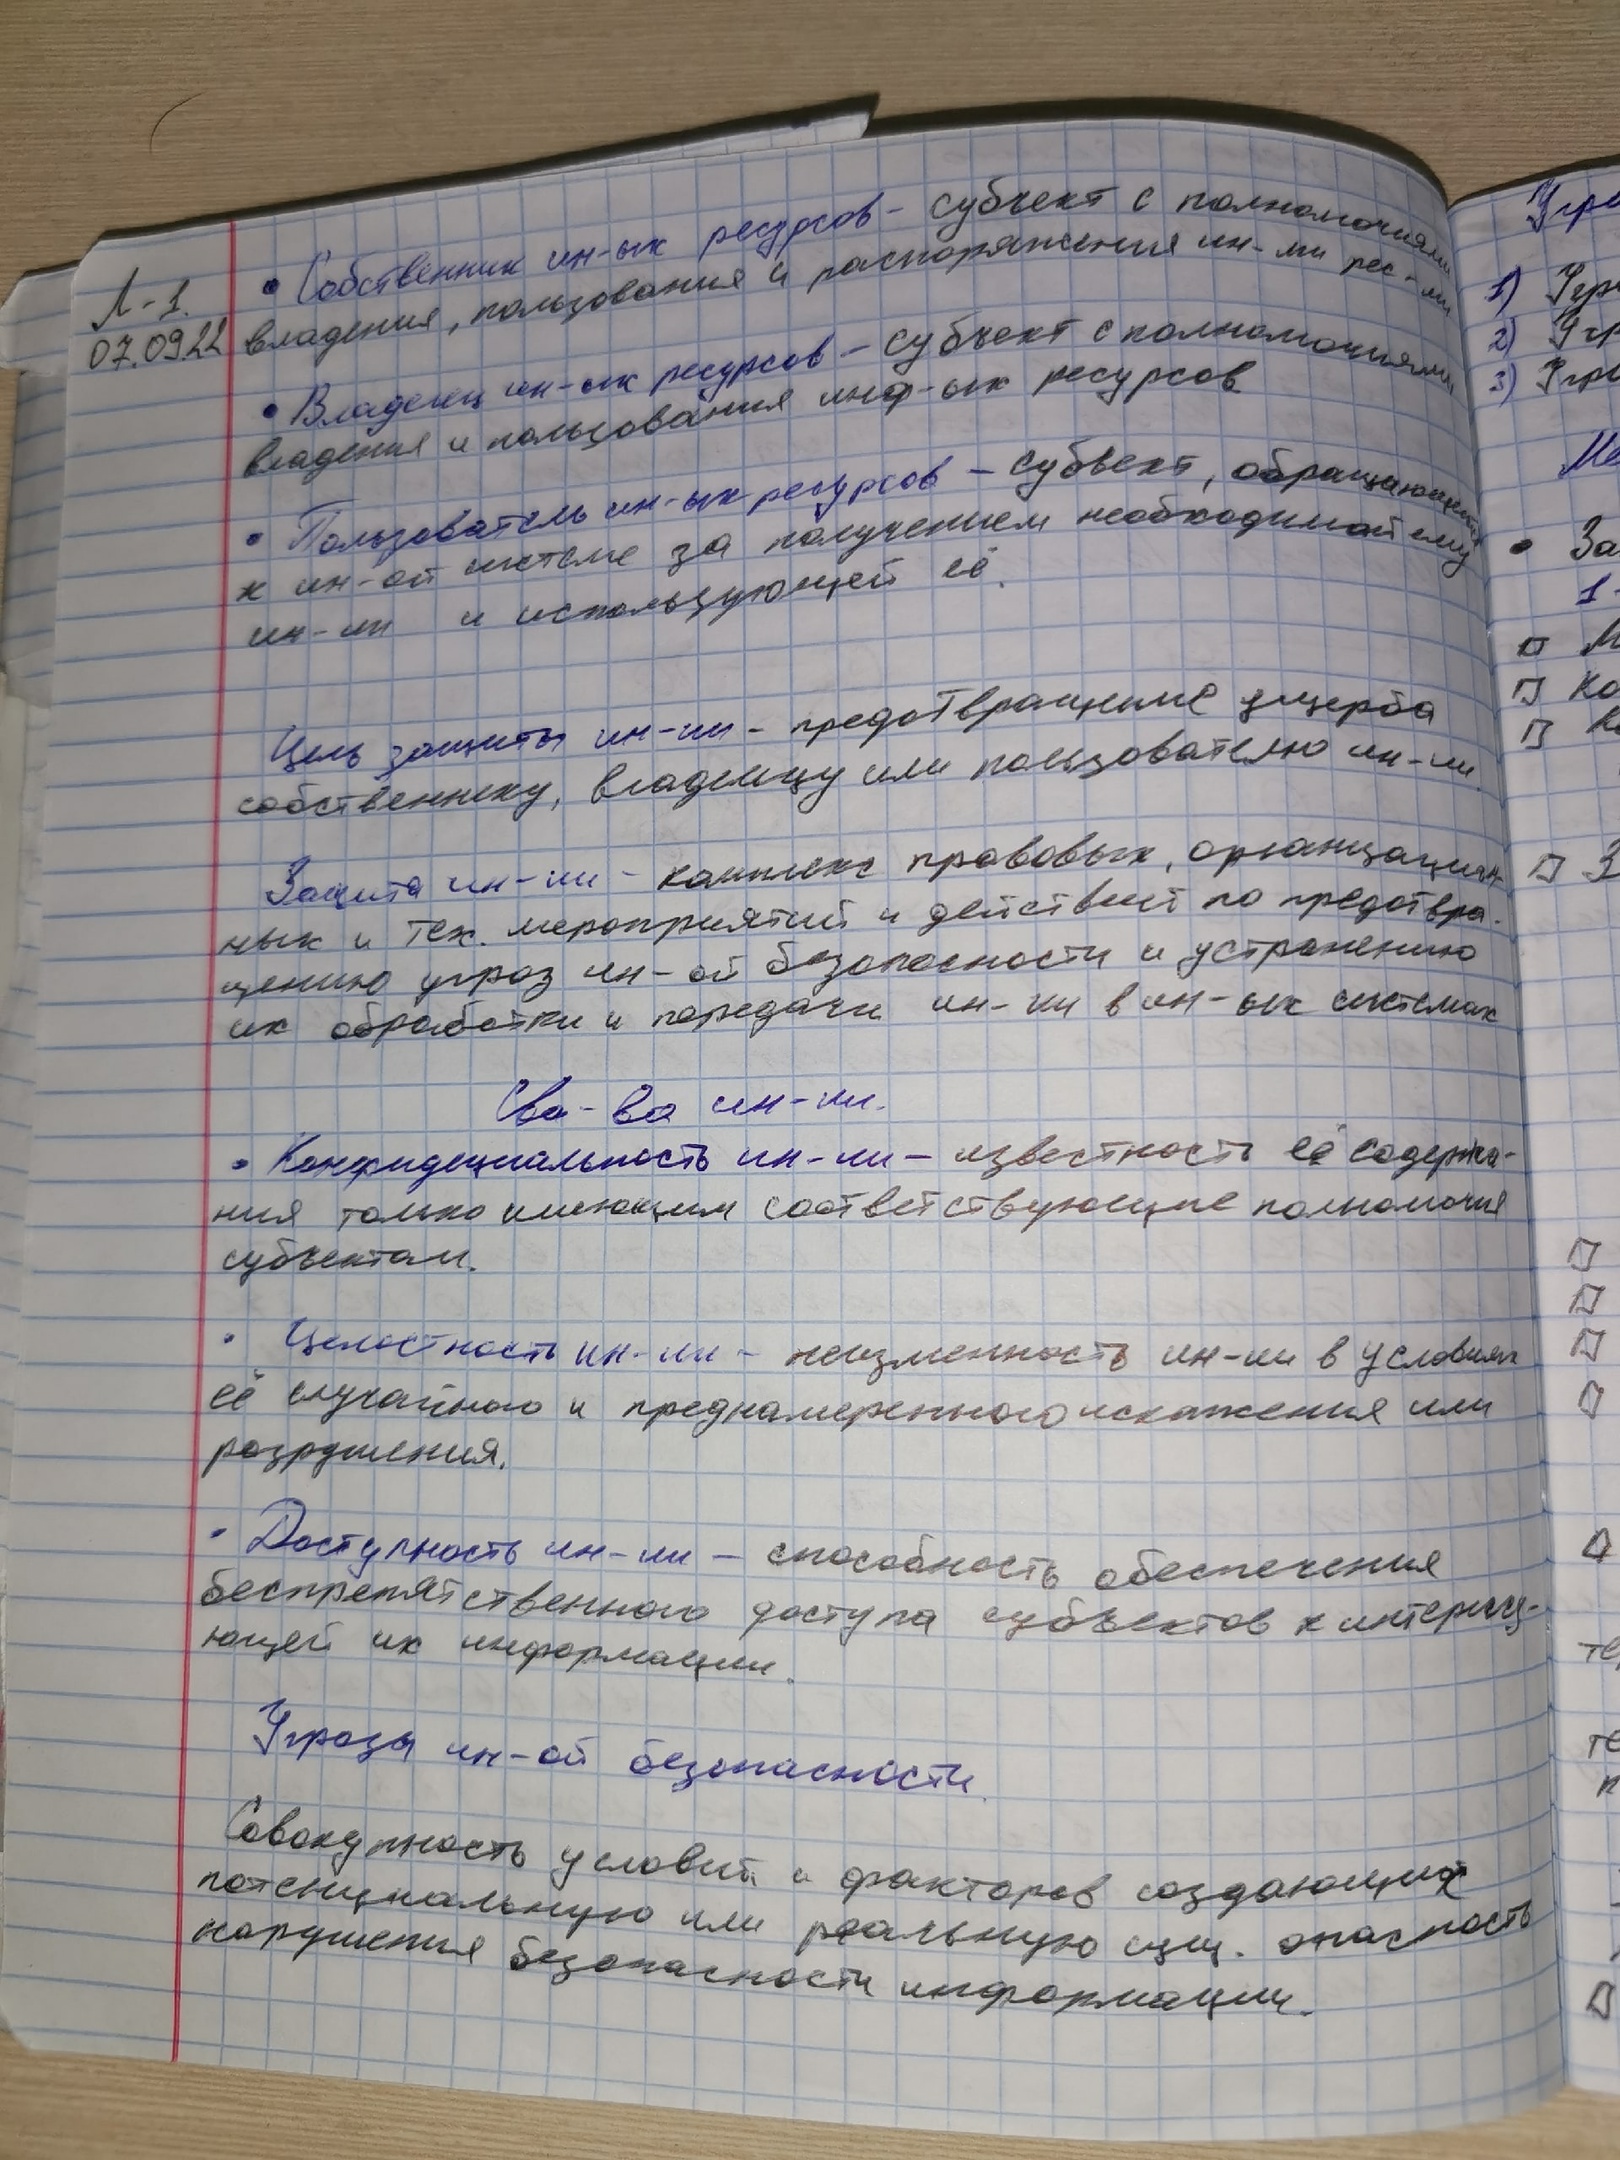 Л-1.
07.09.22
• Собственник ин-ых ресурсов - субъект с полномочиями
владения, пользования и распоряжения ин-ми рес-ми
• Владелец ин-ых ресурсов - субъект с полномочиями
владения и пользования инф-ых ресурсов
• Пользователь ин-ых ресурсов - субъект, обращающийся
к ин-ой системе за получением необходимой ему
ин-ии и использующей её.
Цель защиты ин-ии - предотвращение ущерба
собственнику, владельцу или пользователю ин-ии.
Защита ин-ии - комплекс правовых, организацион-
ных и тех. мероприятий и действий по предотвра-
щению угроз ин-ой безопасности и устранению
их обработки и передачи ин-ии в ин-ых системах
Сво-ва ин-ии.
• Конфидециальность ин-ии - известность её содержа-
ния только имеющим соответствующие полномочия
субъектам.
• Целостность ин-ии - неизменность ин-ии в условиях
её случайного и преднамеренного искажения или
разрушения.
• Доступность ин-ии - способность обеспечения
беспрепятственного доступа субъектов к интересу-
ющей их информации.
Угрозы ин-ой безопасности.
Совокупность условий и факторов создающих
потенциальную или реальную сущ. опасность
нарушения безопасности информации.
1)
2)
3)
• За
1-